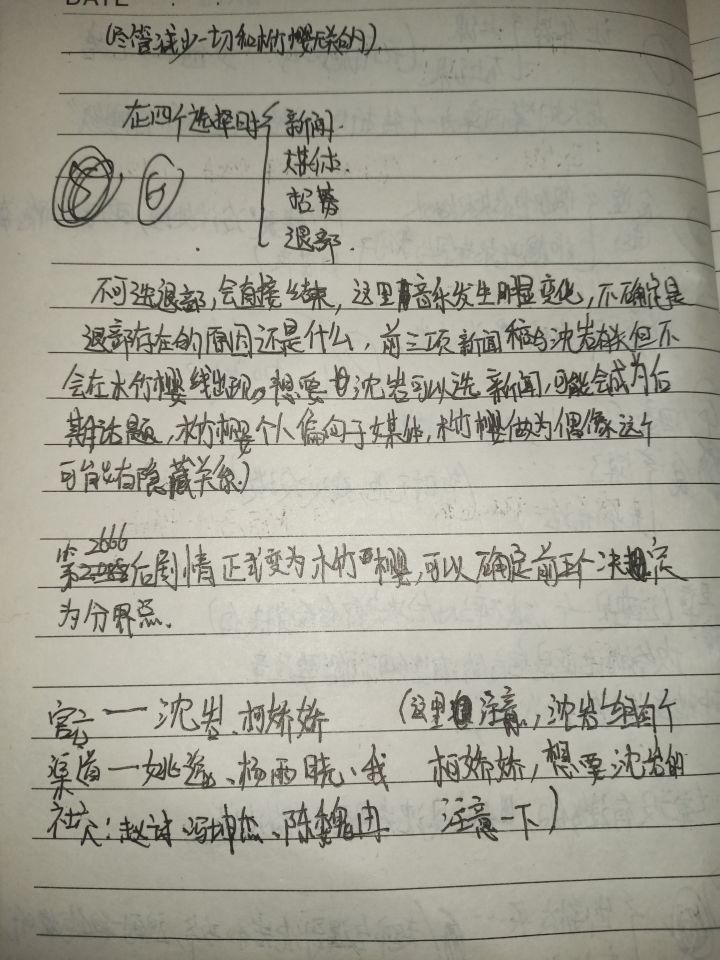 DATE
(尽管减少一切和木竹樱无关的),
在四个选择时 新闻.
媒体.
招募
退部.
5 6
不可选退部,会直接结束,这里有音乐发生明显变化,不确定是
退部存在的原因还是什么,前三项新闻稿与沈岩有关但不
会在木竹樱线出现。想要甘沈岩可以选新闻,可能会成为后
期话题,木竹樱个人偏向于媒体,木竹樱做为偶像这个
可能有隐藏关系)
第2666后剧情正式变为木竹樱,可以确定前五个决定
为分界点.
官方——沈岩、柯娇娇 (这里注意,沈岩组有个
渠道—姚逸、杨雨晓、我 柯娇娇,想要沈岩的
社交:赵诗、冯坤杰、陈魏冉 注意一下)